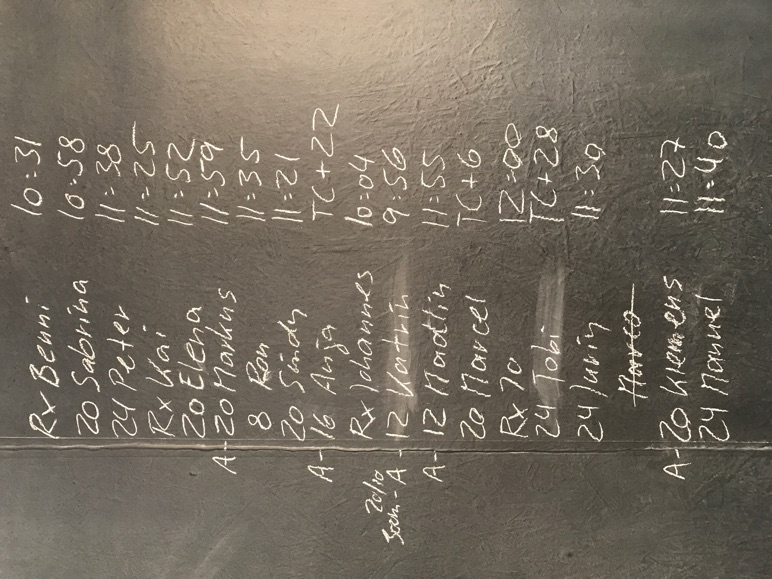 Rx Benni 10:31
20 Sabrina 10:58
24 Peter 11:38
Rx Kai 11:25
20 Elena 11:52
A-20 Markus 11:59
8 Ron 11:35
20 Sindy 11:21
A-16 Anja TC+22
Rx Johannes 10:04
20/10
A-12 Katrin 9:56
A-12 Madlin 11:55
20 Marcel TC+6
Rx Jo 12:00
24 Tobi TC+28
24 11:30
Marco
A-20 Klemens 11:27
24 Manuel 11:40